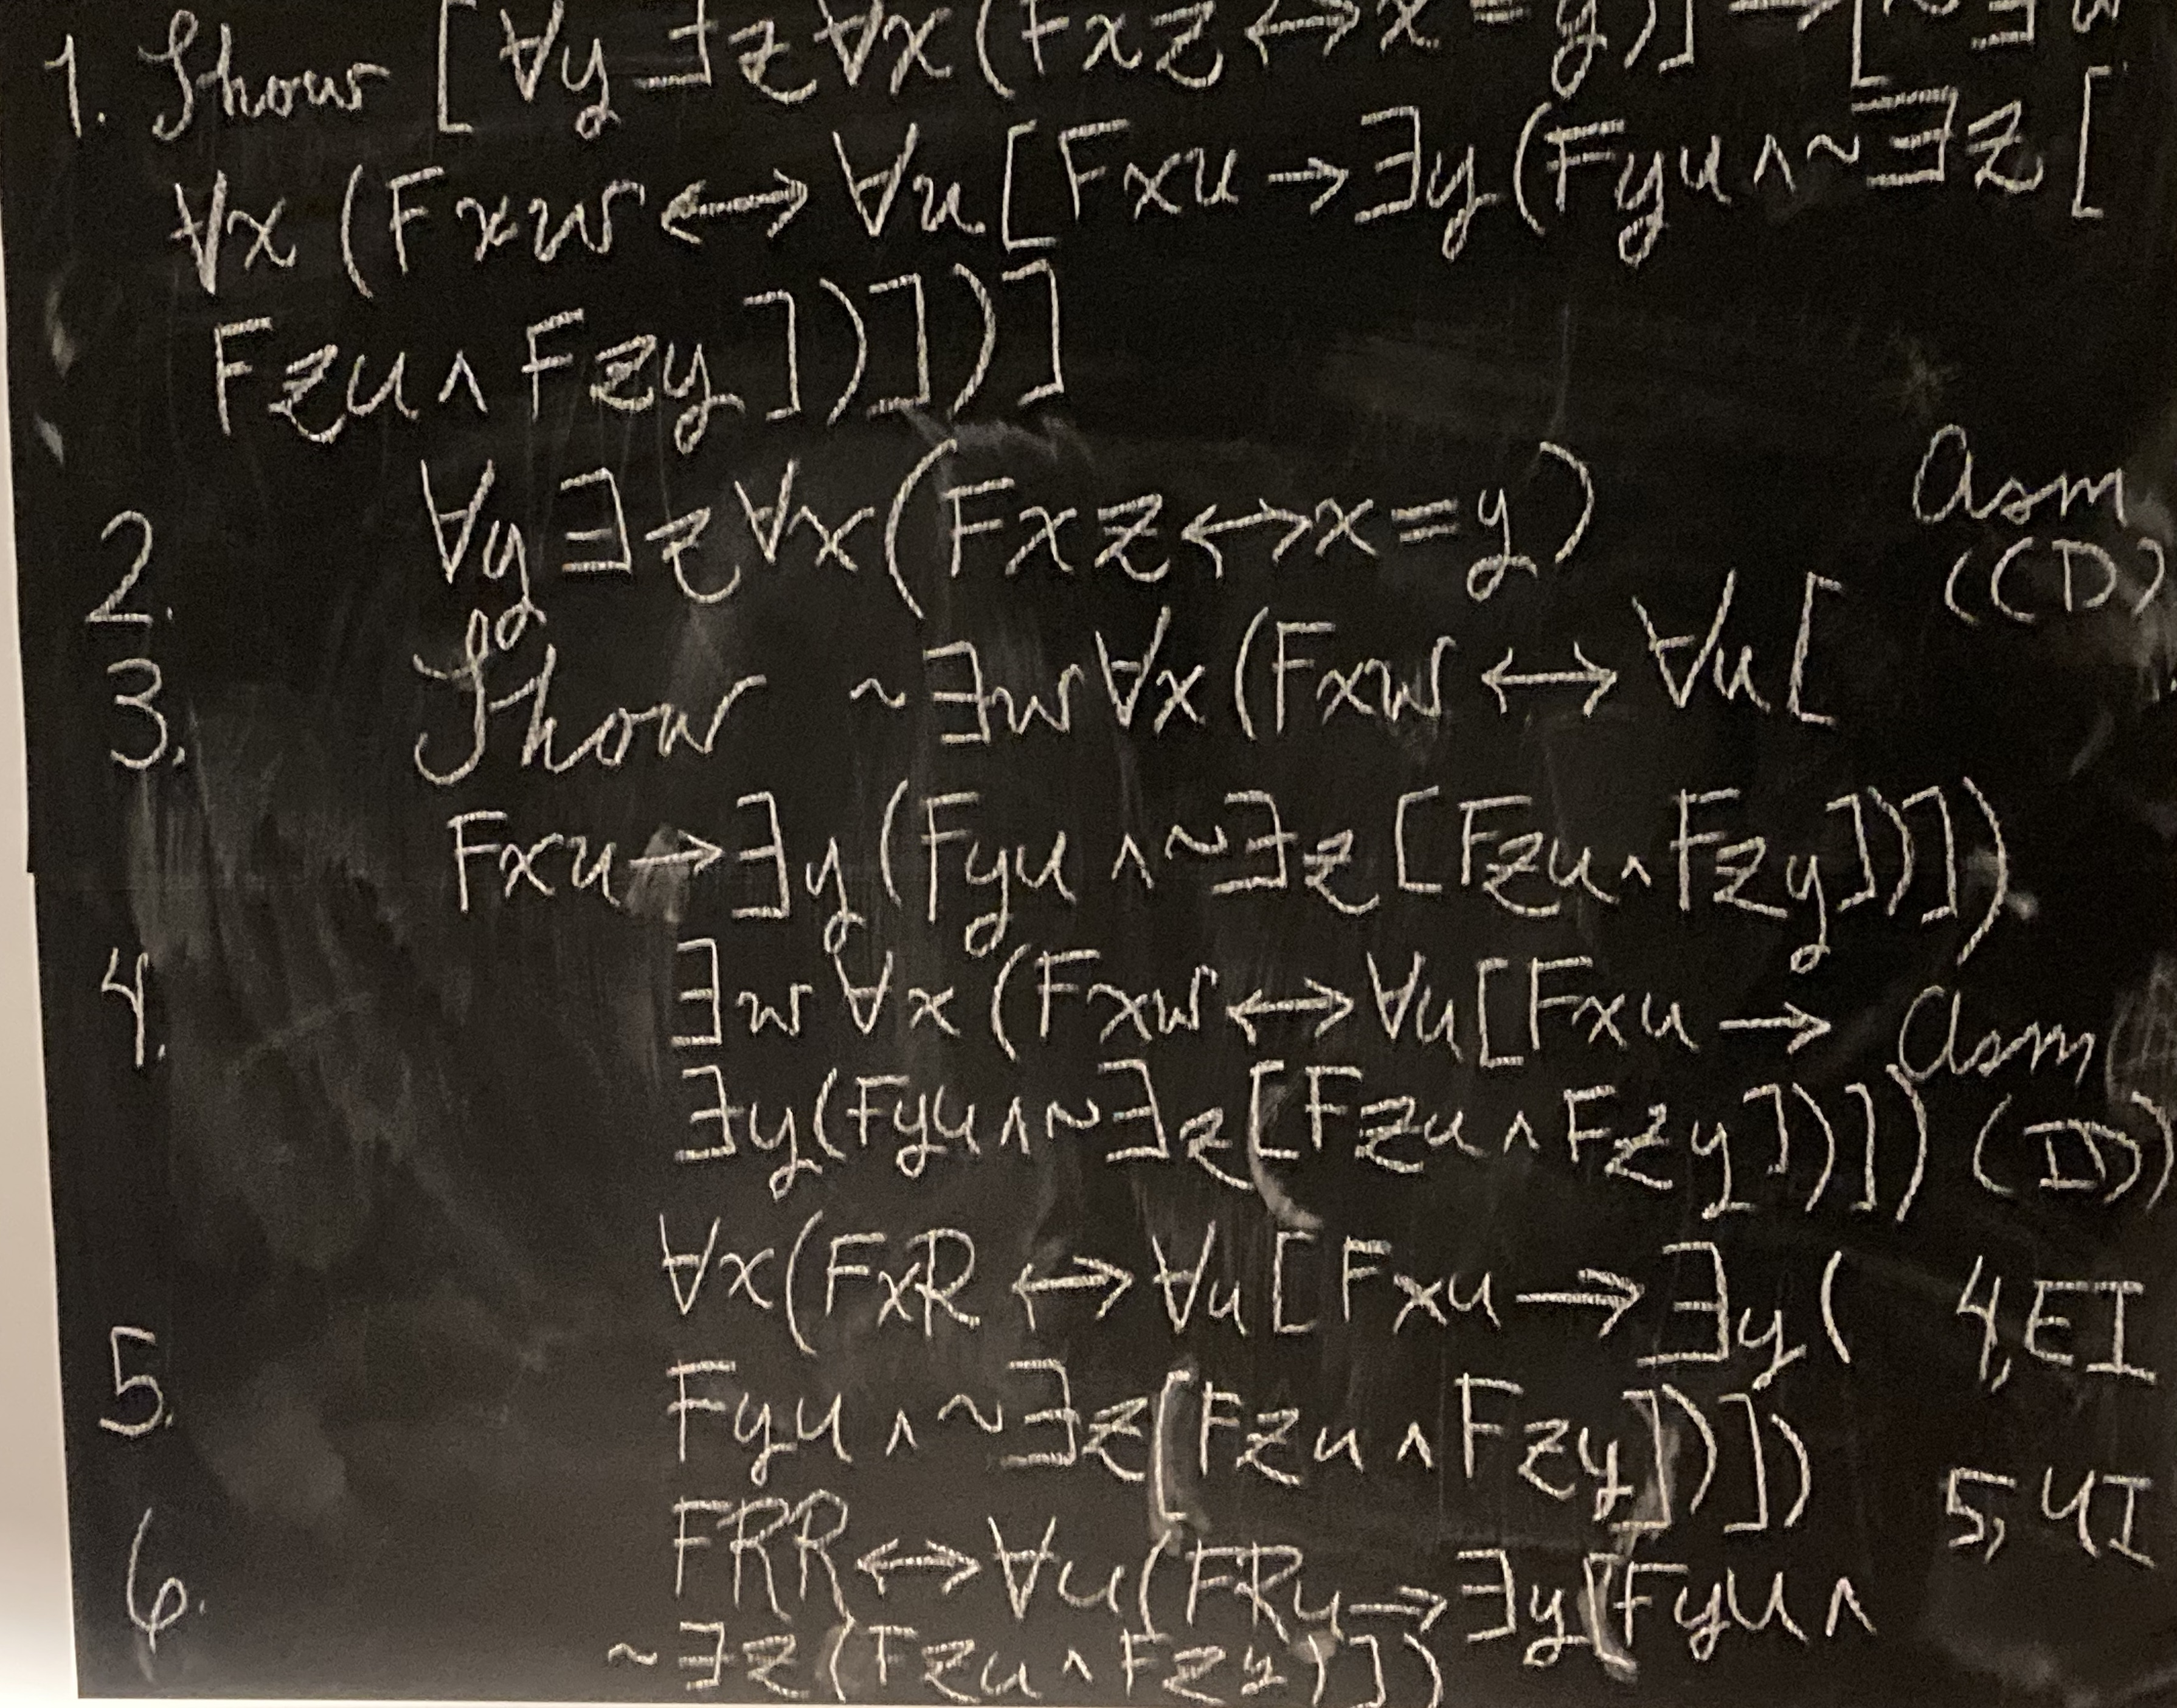 1. Show [∀y∃z∀x(Fxz↔x=y)]→[~∃w
∀x(Fxw↔∀u[Fxu→∃y(Fyu∧~∃z[
Fzu∧Fzy])])]
2. ∀y∃z∀x(Fxz↔x=y) Asm (CD)
3. Show ~∃w∀x(Fxw↔∀u[
Fxu→∃y(Fyu∧~∃z[Fzu∧Fzy])])
4. ∃w∀x(Fxw↔∀u[Fxu→ Asm
∃y(Fyu∧~∃z[Fzu∧Fzy])]) (ID)
∀x(FxR↔∀u[Fxu→∃y( 4, EI
5. Fyu∧~∃z[Fzu∧Fzy])])
6. FRR↔∀u(FRu→∃y[Fyu∧ 5, UI
~∃z(Fzu∧Fzy)])